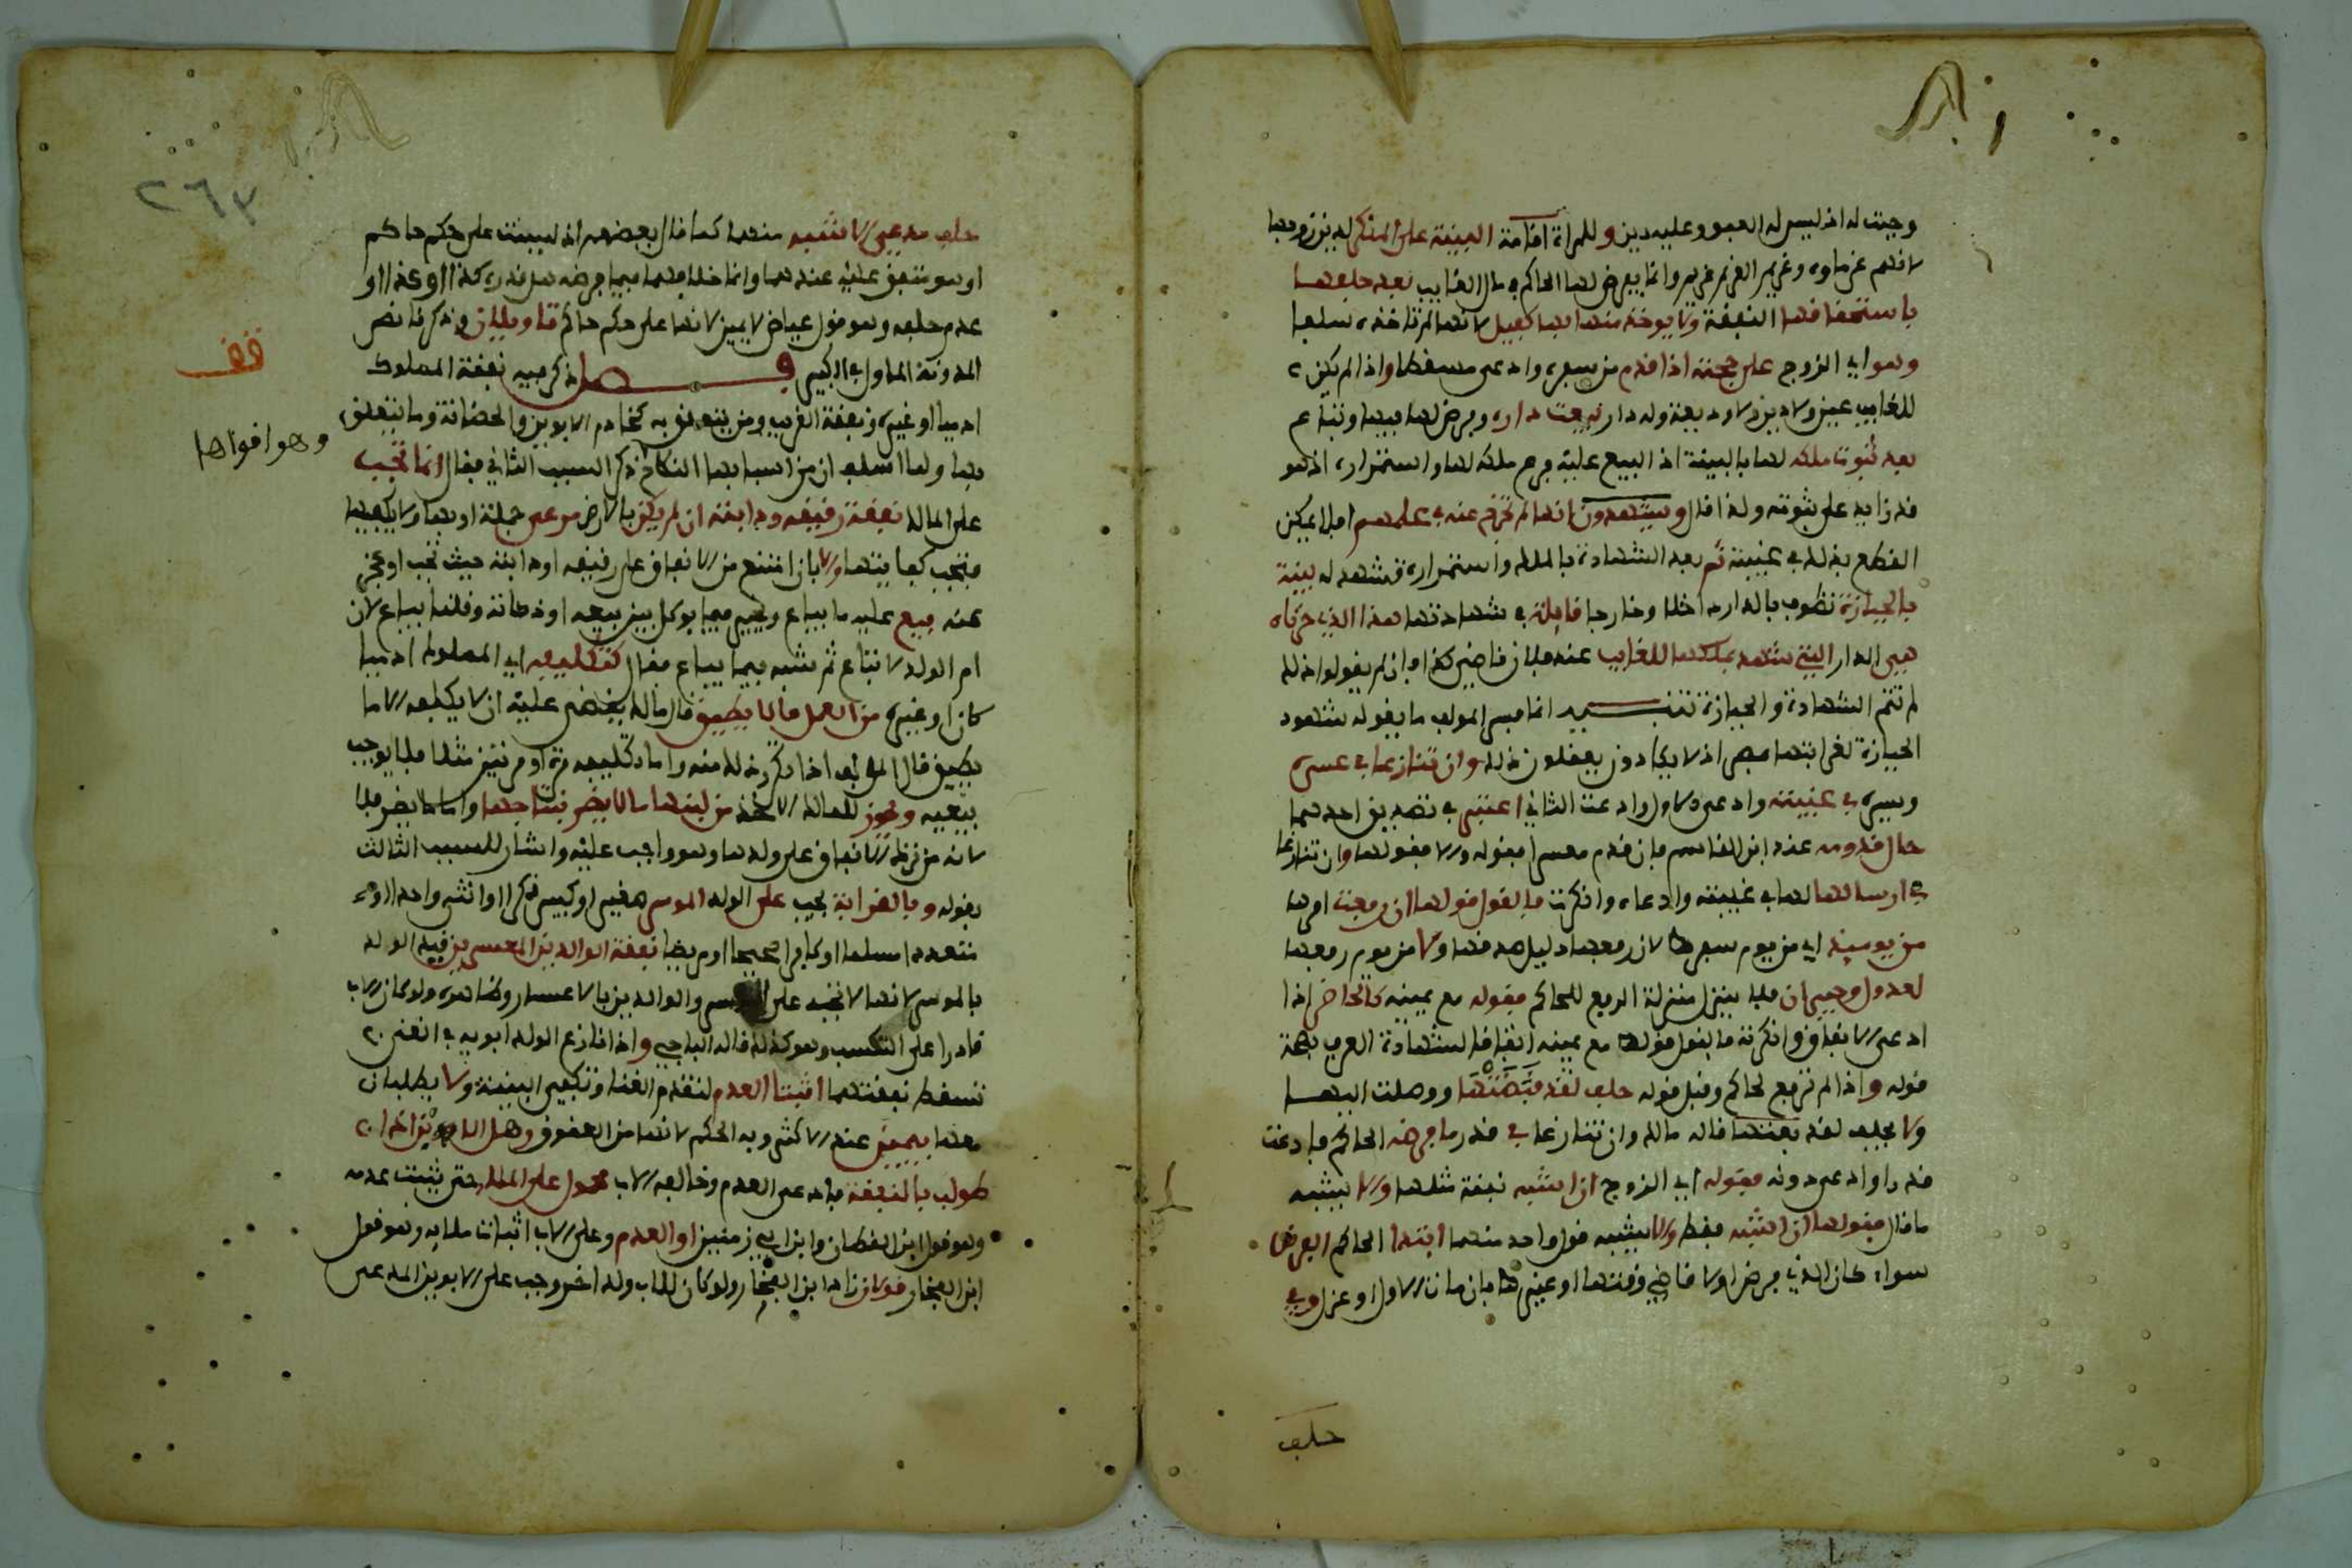 وجبت له اذ ليس له العبو وعليه دين وللمراة اقامة البينة على المنكر لدين زوجها
لانهم غرماوه وغريم الغريم غريم وانما يعرض لها الحاكم في مال الغايب بعد حلفها
باستحقاقها النفقة ولا يوخذ منها بها كفيل لانها لم تاخذه سلفا
وهو اي الزوج على حجته اذا قدم من سفره وادعى مسقطا واذا لم يكن
للغايب عين ولا دين ولا وديعة وله دار بيعت داره وفرض لها فيها وتباع
بعد ثبوت ملكه لها بالبينة اذ البيع عليه فرع ملكه لها واستمراره اذ هو
قدر زايد على ثبوته ولذا قال ويشهدون انها لم تخرج عنه في علمهم اذ لا يمكن
القطع بذلك في غيبته ثم بعد الشهادة بالملك واستمراره تشهد له بينة
بالحيازة تطوف بالدار داخلا وخارجا قايلة في شهادتها هذا الذي حزناه
هي الدار التي شهد بملكها للغايب عند فلان قاضي كذا وان لم يقولوا ذلك
لم تتم الشهادة والحيازة تنبيه انما فسر المولف ما يقوله شهود
الحيازة لغرابتها فهي اذ لا يكادون يعقلون ذلك وان تنازعا في عسره
ويسره في غيبته وادعى الاول وادعت الثاني اعتبر في تصديق احدهما
حال قدومه عند ابن القاسم فان قدم معسرا فقوله والا فقولها وان تنازعا
في ارسالها لها في غيبته وادعاه وانكرت فالقول قولها ان رفعت امرها
من يوميذ اي من يوم سفره لان رفعها دليل صدقها ولا من يوم رفعها
لعدول وجيران فلا ينزل منزلة الرفع للحاكم فقوله مع يمينه كالحاضر اذا
ادعى الانفاق وانكرته فالقول قوله مع يمينه اتفاقا لشهادة العرف بصحة
قوله واذا لم ترفع لحاكم وقبل قوله حلف لقد قبضتها ووصلت اليها
ولا يحلف لقد بعثتها قاله مالك وان تنازعا في قدر ما فرضه الحاكم فادعت
قدرا وادعى دونه فقوله اي الزوج ان اشبه نفقة مثلها والا يشبه
ما قال فقولها ان اشبه فقط والا يشبه قول واحد منهما ابتدا الحاكم الفرض
سواء كان الذي فرض اولا قاضي وقتهما او غيره كما بان مات الاول او عزل وفي
حلف
٢٦٣
حلف مدعي الاشبه منهما كما قال بعضهم اذ ليست على حكم حاكم
او هو متفق عليه عندهما وانما خلافهما فيما فرضه هل قدره كذا او كذا او
عدم حلفه وهو قول عياض لا يمين لانها على حكم حاكم تاويلان وذكرنا نص
المدونة الماول في الكبير فصل ذكر فيه نفقة المملوك
ادميا او غيره ونفقة القريب ومن يتعلق به كخادم الابوين والحضانة وما يتعلق
بها ولما اسلف ان من اسبابها النكاح ذكر السبب الثاني فقال انما تجب
على المالك نفقة رقيقه ودابته ان لم يكن بالارض مرعى جملة او بها ولا يكفيها
فتجب كفايتها والا بان امتنع من الانفاق على رقيقه او دابته حيث تجب او عجز
عنه بيع عليه ما يباع ويخير فيما يوكل بين بيعه او ذكاته وقلنا يباع لان
ام الولد لا تباع ثم شبه فيما يباع فقال كتكليفه اي المملوك ادميا
كان او غيره من العمل ما لا يطيق قال مالك يقضى عليه ان لا يكلفه الا ما
يطيق قال المولف اذا تكرر ذلك منه واما تكليفه مرة او مرتين مثلا فلا يوجب
بيعه ويجوز للمالك الاخذ من لبنها ما لا يضر بنتاجها واما ما يضر فلا
لانه من ترك الانفاق على ولدها وهو واجب عليه واشار للسبب الثالث
بقوله وبالقرابة يجب على الولد الموسر صغير او كبير ذكرا او انثى واحدا او
متعددا مسلما او كافرا صحيحا او مريضا نفقة الوالدين المعسرين فيد الولد
بالموسر لانها لا تجب على المعسر والوالدين بالاعسار وظاهره ولو كان الاب
قادرا على التكسب وهو كذلك قاله الباجي واذا نازع الولد ابويه في الفقر
لتسقط نفقتهما اثبتا العدم لتقدم الغنا وتكفي البينة ولا يطلبان
معها بيمين عند الاكثر وبه الحكم لانها من العقوق وهل الابن اذا
طولب بالنفقة فادعى العدم وخالفه الاب محمول على الملا حتى يثبت عدمه
وهو قول ابن العطار وابن ابي زمنين او العدم وعلى الاب اثبات ملايه وهو قول
ابن الفخار قولان زاد ابن الفخار ولو كان للاب ولد اخر وجب على الابوين المدعى
قف
وهو اقواها